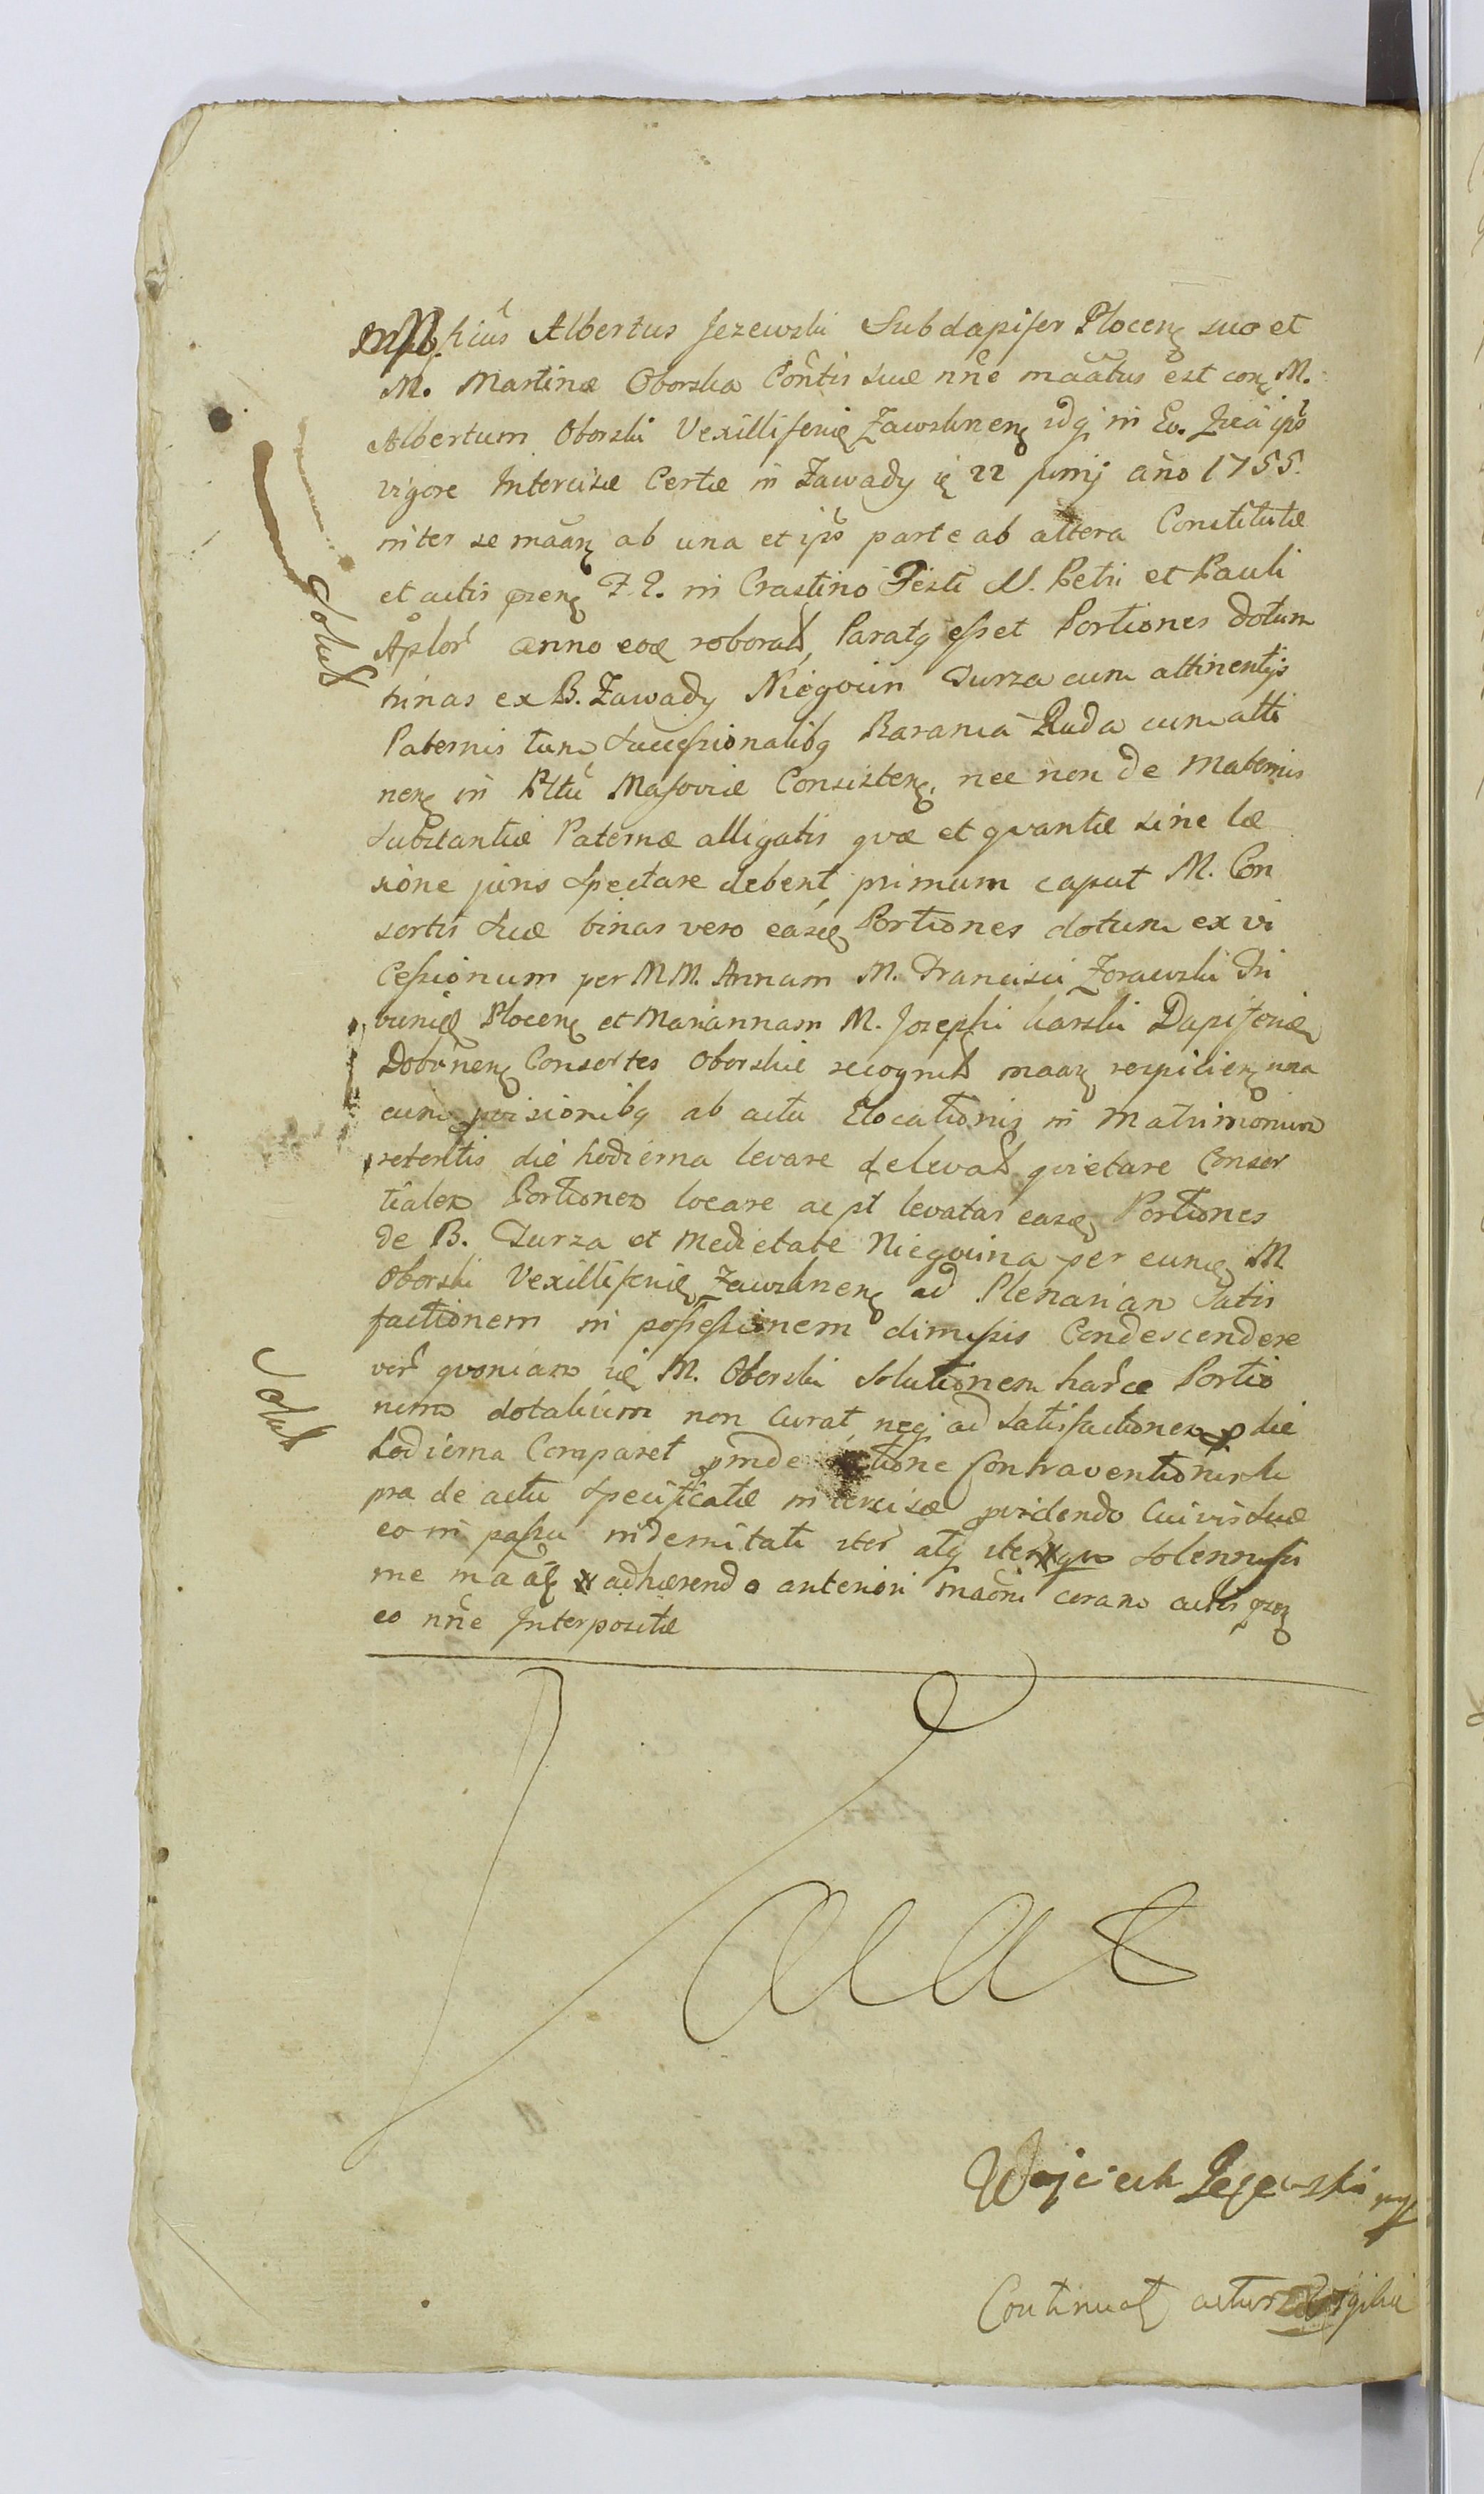 Mficus Albertus Jezewski Subdapifer Plocen suo et
M. Martinæ Oborska Contis suæ nne maatus est con M.
Albertum Oborski Vexilliferid Zawskrnen idq in Eo. Quia ips
vigore Intercisæ Certæ in Zawady d 22 junij año 1755.
inter se maan ab una et ips parte ab altera Constitutæ
et actis pren F. 2. in Crastino Festi N. Petri et Pauli
Aplor anno eod roborat, Paratq esset Portiones dotum
trinas ex B. Zawady Niegocin Turza cum attinentijs
Paternis tum Successionalibq Barania Ruda cum atti
nen in Pttu Masoviæ Consisten, nec non de Maternis
Substantiæ Paternæ alligatis qvæ et qvantæ sine læ
sione juris Spectare debent, primum caput M. Con
sortis Suæ binas vero easd Portiones dotum ex vi
Cessionum per MM. Annam M. Francisci Zorawski Tri
bunid Plocen et Mariannam M. Josephi Karski Dapiferid
Dobrinen Consortes Oborskie recognit maan respicien una
cum provisionibq ab actu Elocationis in Matrimonium
retentis die hodierna levare delevat qvietare Consor
tiales Portiones locare ac pt levatas easd Portiones
de B. Turza et Medietate Niegocina per eund M
Oborski Vexilliferid Zawskrnen ad Plenariam Satis
factionem in possessionem dimissis Condescendere
ver qvoniam id M. Oborski Solutionem harce Portio
num dotalium non Curat, neq ad Satisfactionem p die
hodierna Comparet proinde Contraventionis Su
pra de actu Specificatæ intercisæ pvidendo Cuivis Suæ
eo in passu indemnitati iter atq Solennissi
me maat adhærendo anteriori maoni coram actis pren
eo nne Interpositæ
Solut
Solut
Wojciech Jezewski mp
Continuat actus